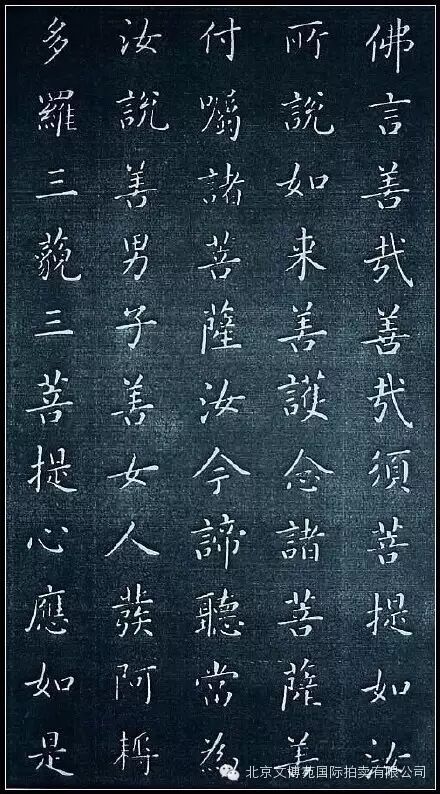 佛言善哉善哉須菩提如汝
所說如来善護念諸菩薩善
付囑諸菩薩汝今諦聽當為
汝說善男子善女人發阿耨
多羅三藐三菩提心應如是
北京文博苑国际拍卖有限公司